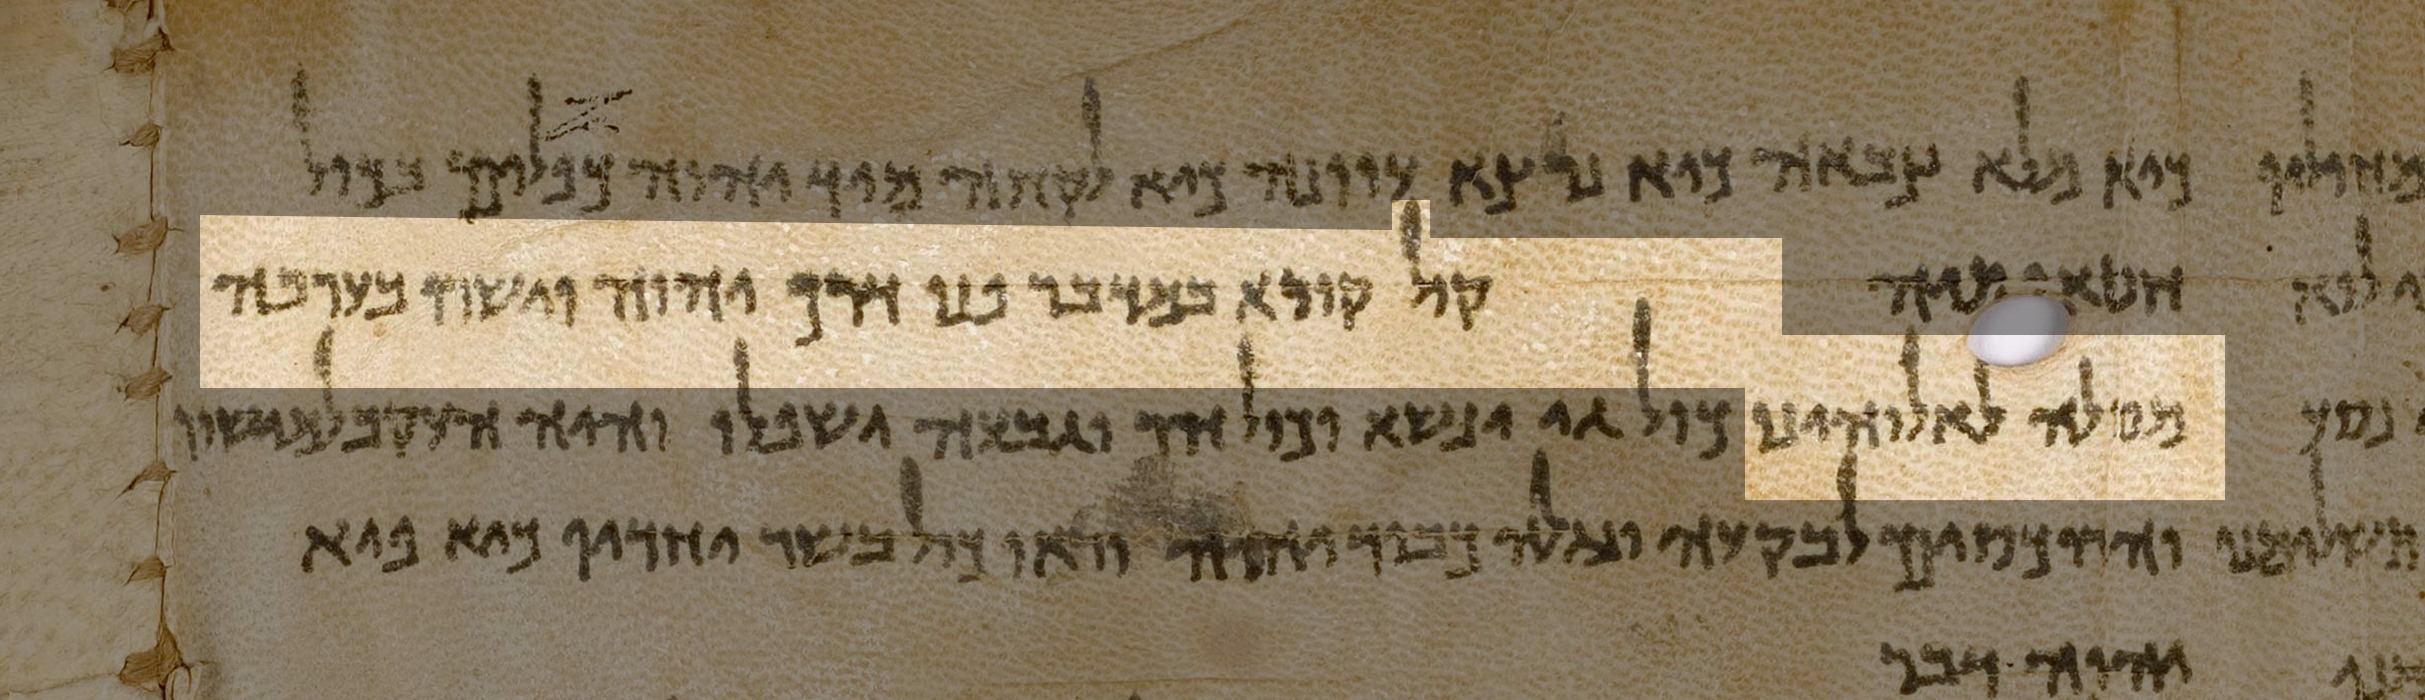 כיא מלא צבאה כיא נרצא עוונה כיא לקחה מיד יהוה כפלים בכול
חטאותיה קול קורא במדבר פנו דרך יהוה וישרו בערבה
מסלה לאלוהינו כול גי ינשא וכול הר וגבעה ישפלו והיה העקב למישור
והרוכסים לבקעה ונגלה כבוד יהוה וראו כול בשר יחדיו כיא פיא
יהוה דבר